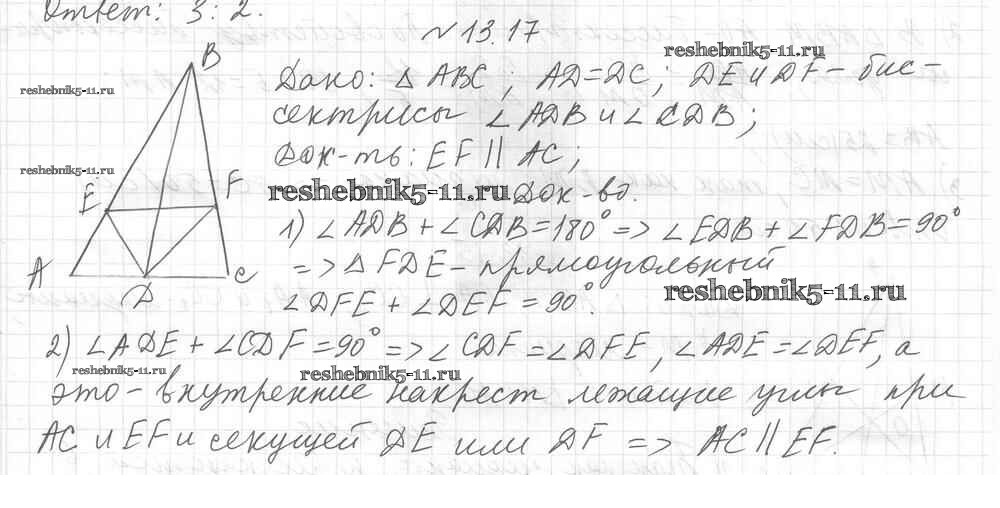 Ответ: 3:2.
№13.17
reshebnik5-11.ru
B
Дано: △ ABC ; AD=DC ; DE и DF – бис-
reshebnik5-11.ru
сектрисы ∠ ADB и ∠ CDB ;
Док-ть: EF || AC ;
reshebnik5-11.ru
E F
reshebnik5-11.ru Док-во.
1) ∠ADB + ∠CDB=180° => ∠EDB + ∠FDB=90°
A D C
=> △ FDE – прямоугольный
∠DFE + ∠DEF = 90°.
reshebnik5-11.ru
2) ∠ADE + ∠CDF=90° => ∠CDF=∠DFE, ∠ADE=∠DEF, а
reshebnik5-11.ru
reshebnik5-11.ru
это – внутренние накрест лежащие углы при
AC и EF и секущей DE или DF => AC || EF.